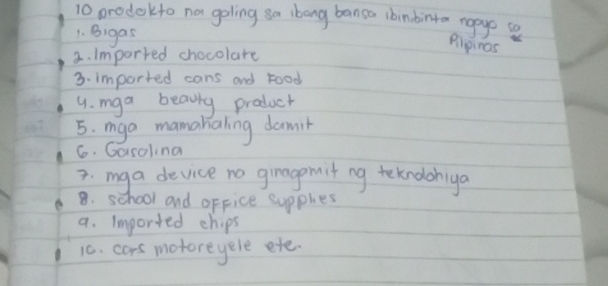 10 prodokto na galing sa ibang bansa ibinbinta ngayo sa
Pilipinas
1. Bigas
2. Imported chocolate
3. imported cans and Food
4. mga beauty product
5. mga mamahaling damit
6. Gasolina
7. mga device na ginagamit ng teknolohiya
8. school and office supplies
9. Imported chips
10. cars motorcycle etc.